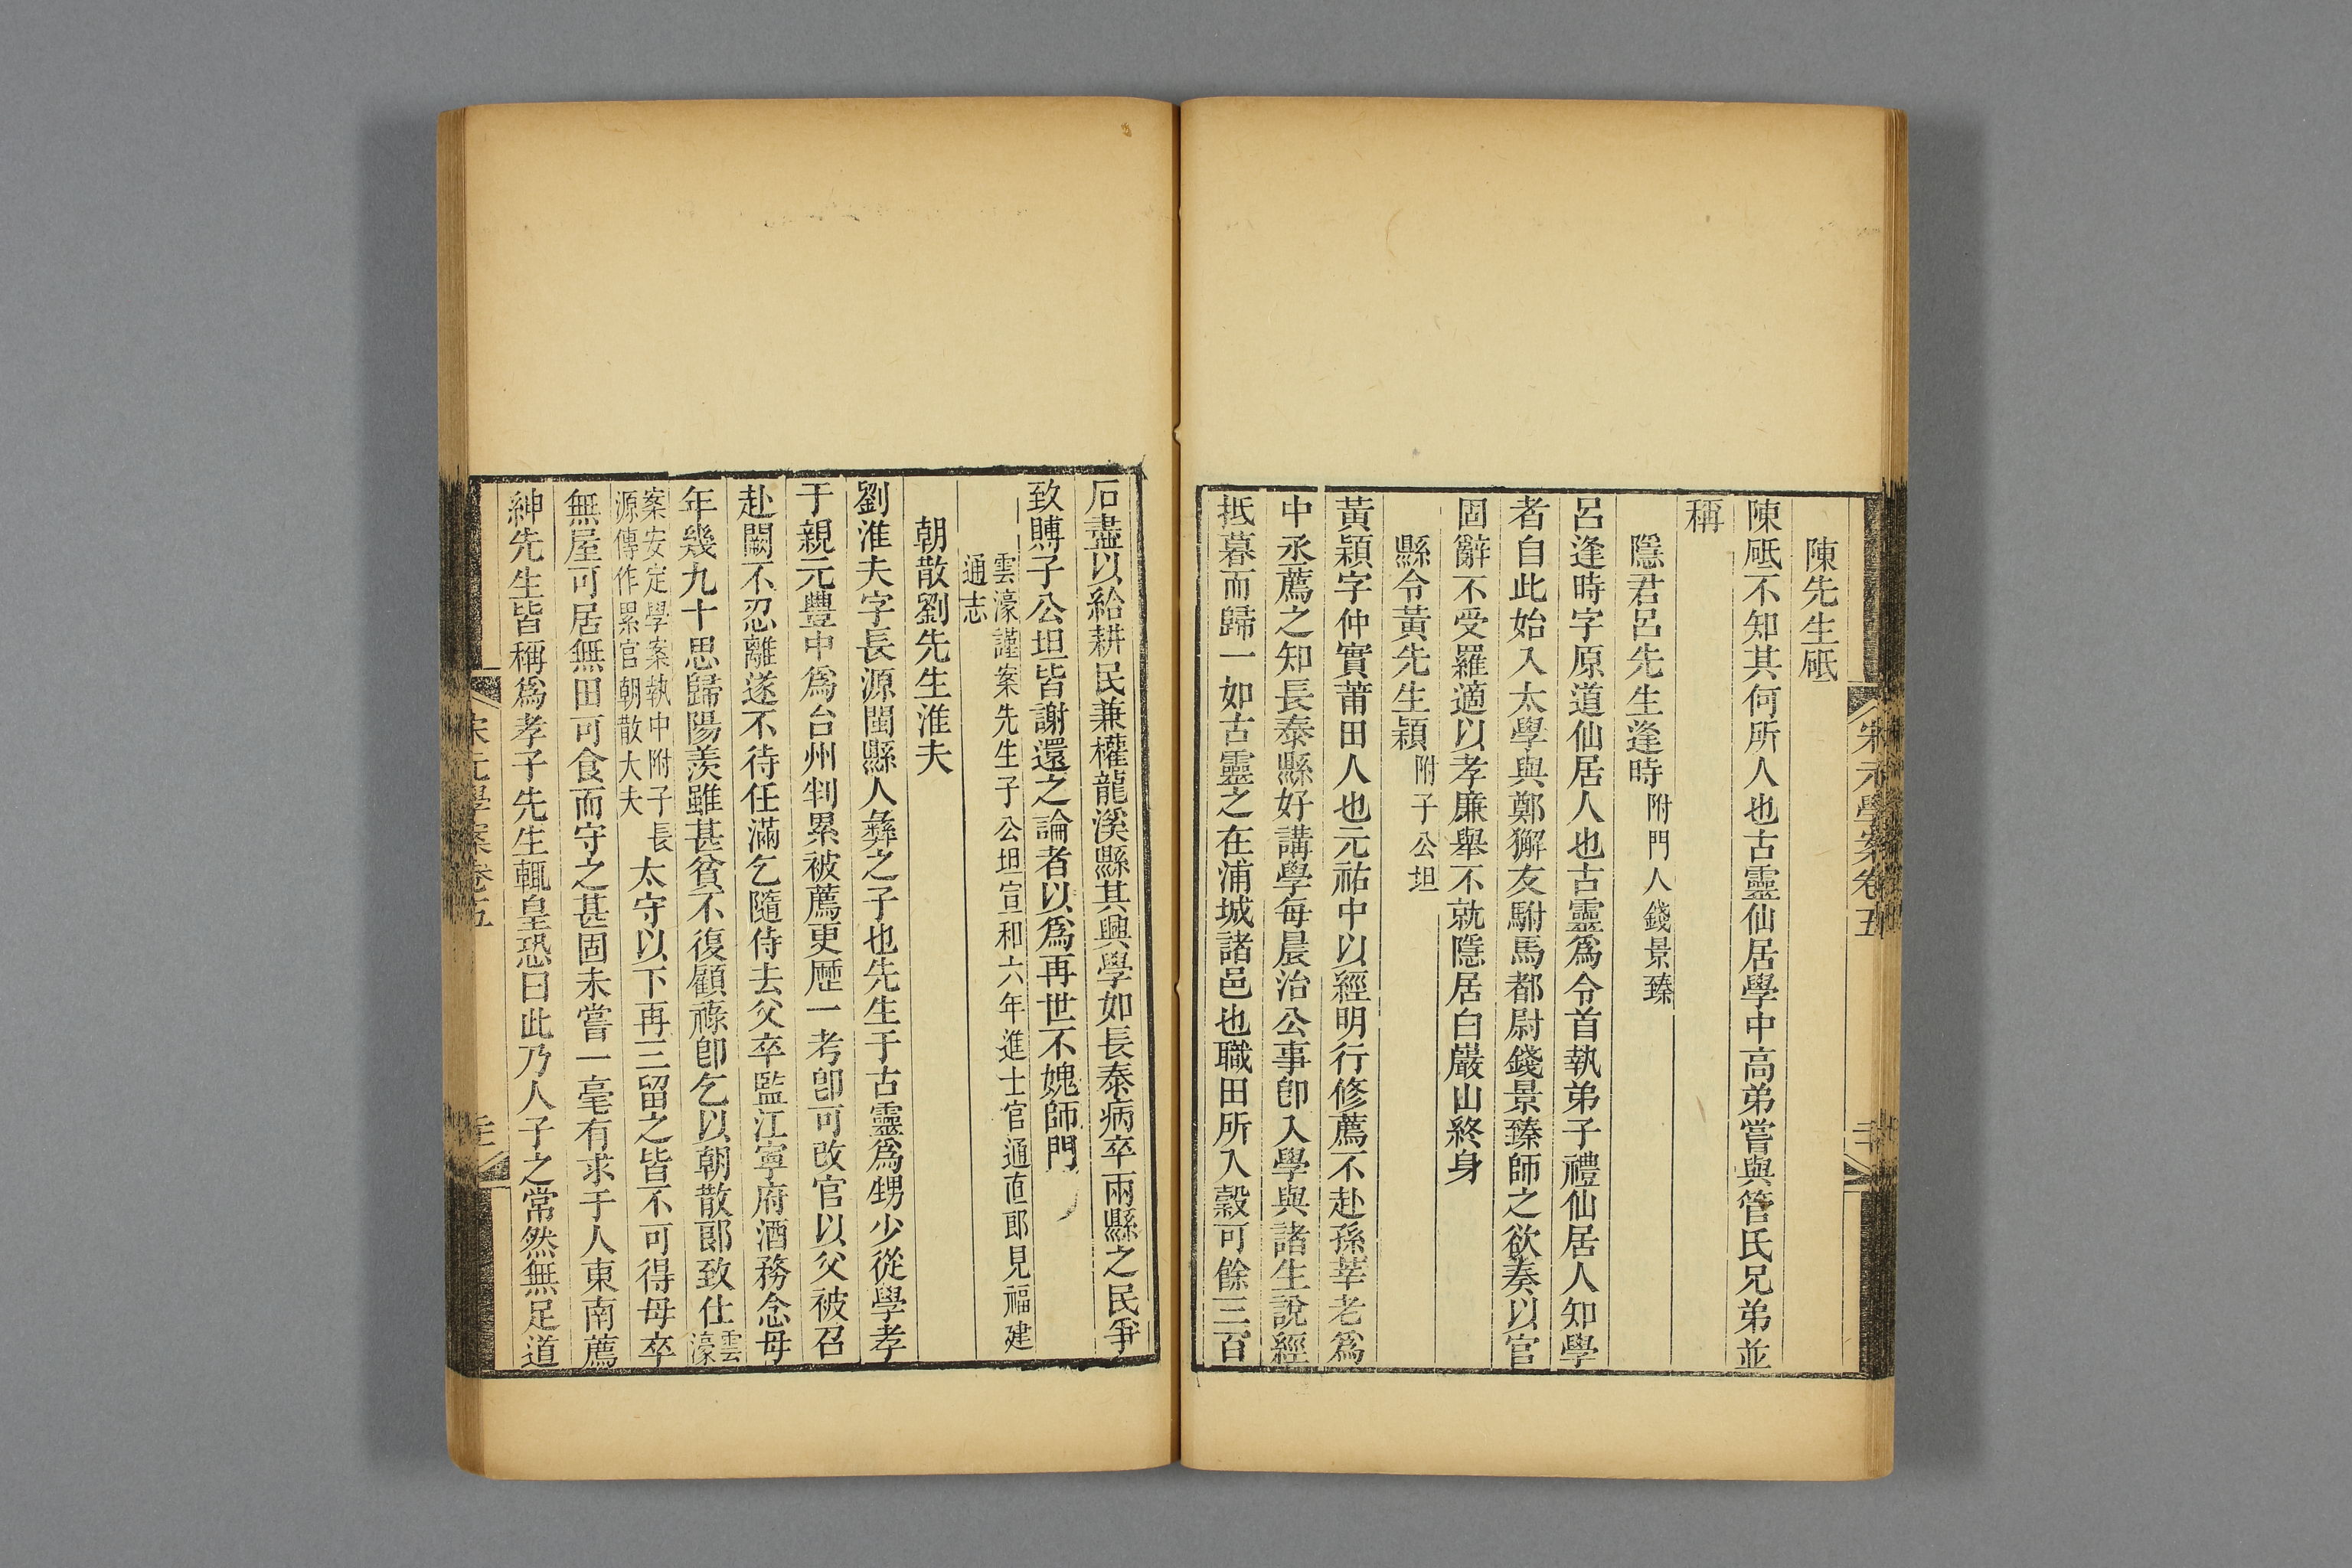 宋元學案卷五
陳先生砥
陳砥不知其何所人也古靈仙居學中高弟嘗與管氏兄弟並
稱
隱君呂先生逢時附門人錢景臻
呂逢時字原道仙居人也古靈爲令首執弟子禮仙居人知學
者自此始入太學與鄭獬友駙馬都尉錢景臻師之欲奏以官
固辭不受羅適以孝廉舉不就隱居白巖山終身
縣令黃先生穎附子公坦
黃穎字仲實莆田人也元祐中以經明行修薦不赴孫莘老爲
中丞薦之知長泰縣好講學每晨治公事卽入學與諸生說經
抵暮而歸一如古靈之在浦城諸邑也職田所入穀可餘三百
石盡以給耕民兼權龍溪縣其興學如長泰病卒兩縣之民爭
致賻子公坦皆謝還之論者以爲再世不媿師門
雲濠謹案先生子公坦宣和六年進士官通直郎見福建
通志
朝散劉先生淮夫
劉淮夫字長源閩縣人彝之子也先生于古靈爲甥少從學孝
于親元豐中爲台州判累被薦更歷一考卽可改官以父被召
赴闕不忍離遂不待任滿乞隨侍去父卒監江寧府酒務念母
年幾九十思歸陽羨雖甚貧不復顧祿卽乞以朝散郎致仕雲濠
案安定學案執中附子長
源傳作累官朝散大夫
太守以下再三留之皆不可得母卒
無屋可居無田可食而守之甚固未嘗一毫有求于人東南薦
紳先生皆稱爲孝子先生輒皇恐曰此乃人子之常然無足道
宋元學案卷五